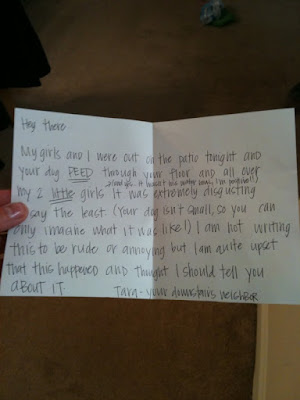 Hey there-
My girls and I were out on the patio tonight and
your dog PEED through your floor and all over
my 2 little girls. It was extremely disgusting
to say the least. (Your dog isn't small, so you can
only imagine what it was like!) I am not writing
this to be rude or annoying but I am quite upset
that this happened and thought I should tell you
about it.
Tara - your downstairs neighbor